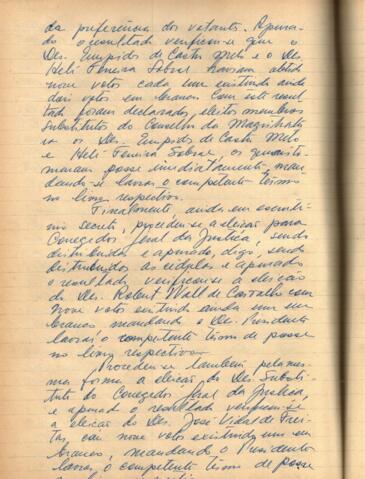 da preferência dos votantes. Apura-
do o resultado verificou-se que o
Des. Eurípides de Castro Melo e o Des.
Heli Ferreira Sobral haviam obtido
nove votos cada um existindo ainda
dois votos em branco. Com este resul-
tado foram declarados eleitos membros
Substitutos do Conselho da Magistratu-
ra os Des. Eurípides de Castro Melo
e Heli Ferreira Sobral, os quais to-
maram posse imediatamente, man-
dando-se lavrar o competente termo
no livro respectivo.
Finalmente, ainda em escrutí-
nio secreto, procedeu-se a eleição para
Corregedor Geral da Justiça, sendo
distribuida e apurado, digo, sendo
distribuidas as cédulas e apurado
o resultado, verificou-se a eleição
do Des. Robert Wall de Carvalho com
nove votos existindo ainda um em
branco mandando o Des. Presidente
lavrar o competente termo de posse
no livro respectivo.
Procedeu-se também pela mes-
ma forma a eleição do Des. Substi-
tuto do Corregedor Geral da Justiça,
e apurado o resultado verificou-se
a eleição do Des. José Vidal de Frei-
tas, com nove votos existindo um em
branco, mandando o Presidente
lavrar o competente termo de posse